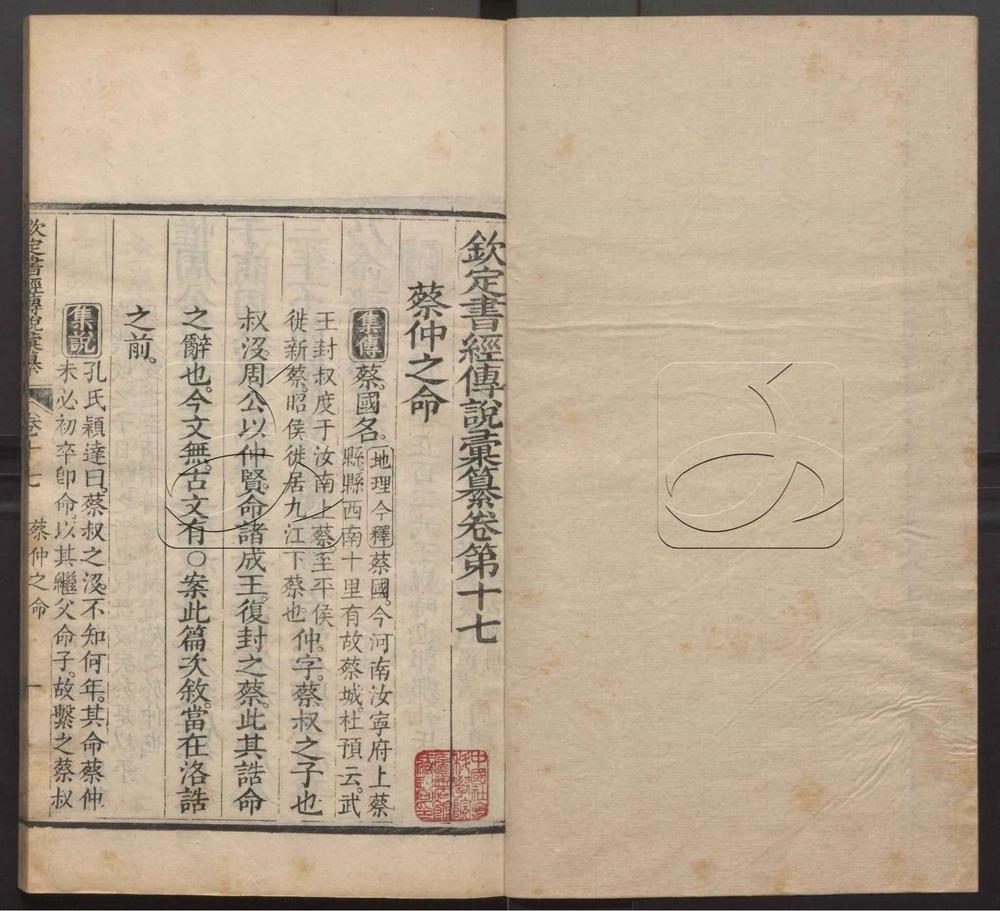 欽定書經傳說彙纂卷第十七
蔡仲之命
集傳 蔡。國名。地理今釋蔡國。今河南汝寧府上蔡
縣。縣西南十里有故蔡城。杜預云。武
王封叔度于汝南上蔡。至平侯
徙新蔡。昭侯徙居九江下蔡也。仲。字。蔡叔之子也
叔沒。周公以仲賢。命諸成王。復封之蔡。此其誥命
之辭也。今文無。古文有○案此篇次敘。當在洛誥
之前。
集說 孔氏穎達曰。蔡叔之沒。不知何年。其命蔡仲
未必初卒卽命。以其繼父命子。故繫之蔡叔
欽定書經傳說彙纂 卷十七 蔡仲之命 一